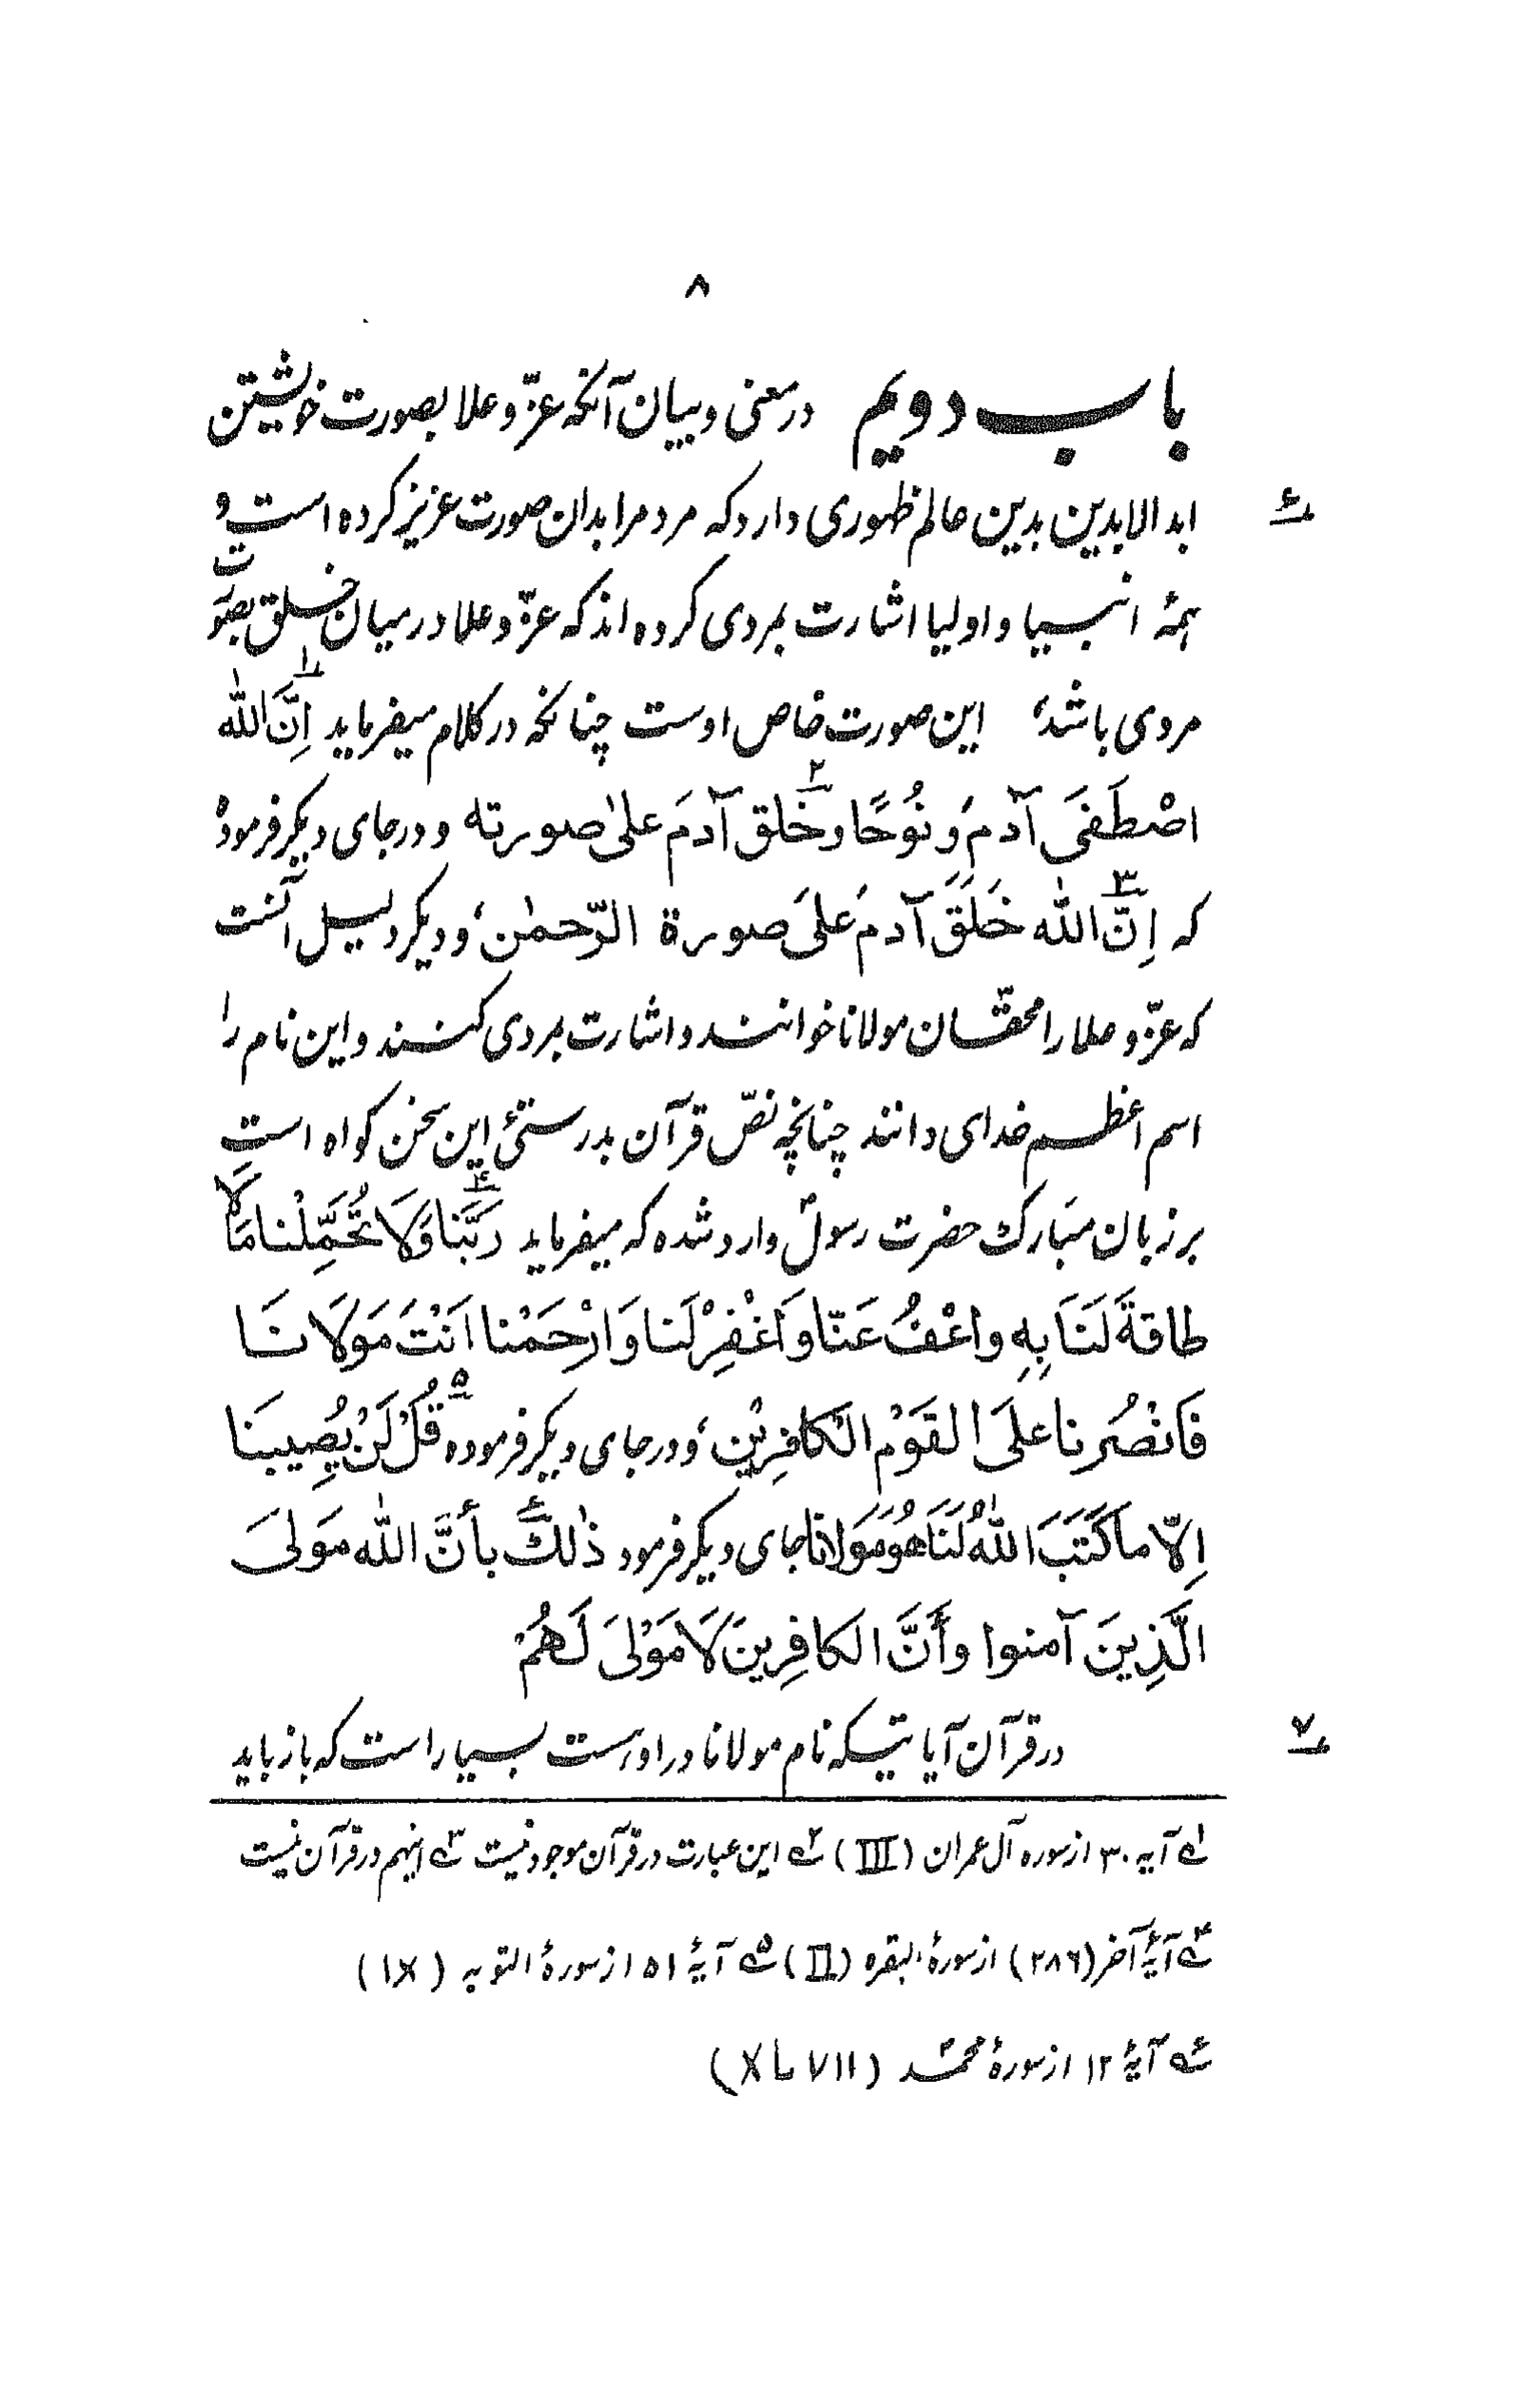 ۸
باب دویم در معنی و بیان آنکه عزّ و علا بصورت خویشتن
۶ ابد الابدین بدین عالم ظهوری دارد که مردم را بدان صورت عزیز کرده است و
همهٔ انبیا و اولیا اشارت بمردی کرده‌اند که عزّ و علا در میان خلق بصورت
مردی باشد، این صورت خاص اوست چنانکه در کلام میفرماید ۱ اِنَّ الله
اصْطَفَی آدمَ وَنُوحًا ۲ وخَلق آدمَ علیٰ صورته و در جای دیگر فرموده
که ۳ اِنَّ الله خَلَقَ آدمَ عَلیَ صورة الرّحمٰن، و دیگر دلیل آنست
که عزّ و علا را محقّان مولانا خوانند و اشارت بمردی کنند و این نام را
اسم اعظم خدای دانند چنانچه نصّ قرآن بدرستیٔ این سخن کواه است
بر زبان مبَارک حضرت رسولؐ وارد شده که میفرماید ۴ رَبَّنا وَلاَ تُحَمِّلْنا مَالاَ
طاقةَ لَنَا بِهِ واعْفُ عَنّا وَاغْفِرْ لَنا وَارْحَمْنا اَنْتَ مَوْلاَنَا
فَانْصُرنا علَی القَوْم الْكافِرِیْن، و در جای دیگر فرموده ۵ قُلْ لَنْ یُصِیبنَا
اِلاّ ما كَتَبَ اللهُ لَنَا هُوَ مَوَلانا جای دیگر فرمود ۶ ذٰلكَ بأنَّ الله مَولیَ
الَّذِینَ آمنوا وأَنَّ الكافِرِینَ لاَ مَوْلیَ لَهُمْ
۷ در قرآن آیاتیکه نام مولانا در اوست بسیار است که باز باید
۱ه آیه ۳۰ از سوره آل عمران (III) ۲ه این عبارت در قرآن موجود نیست ۳ه اینهم در قرآن نیست
۴ه آیهٔ آخر (۲۸۶) از سورهٔ البقره (II) ۵ه آیهٔ ۵۱ از سورهٔ التوبه (IX)
۶ه آیهٔ ۱۲ از سورهٔ محمّد (XLVII)